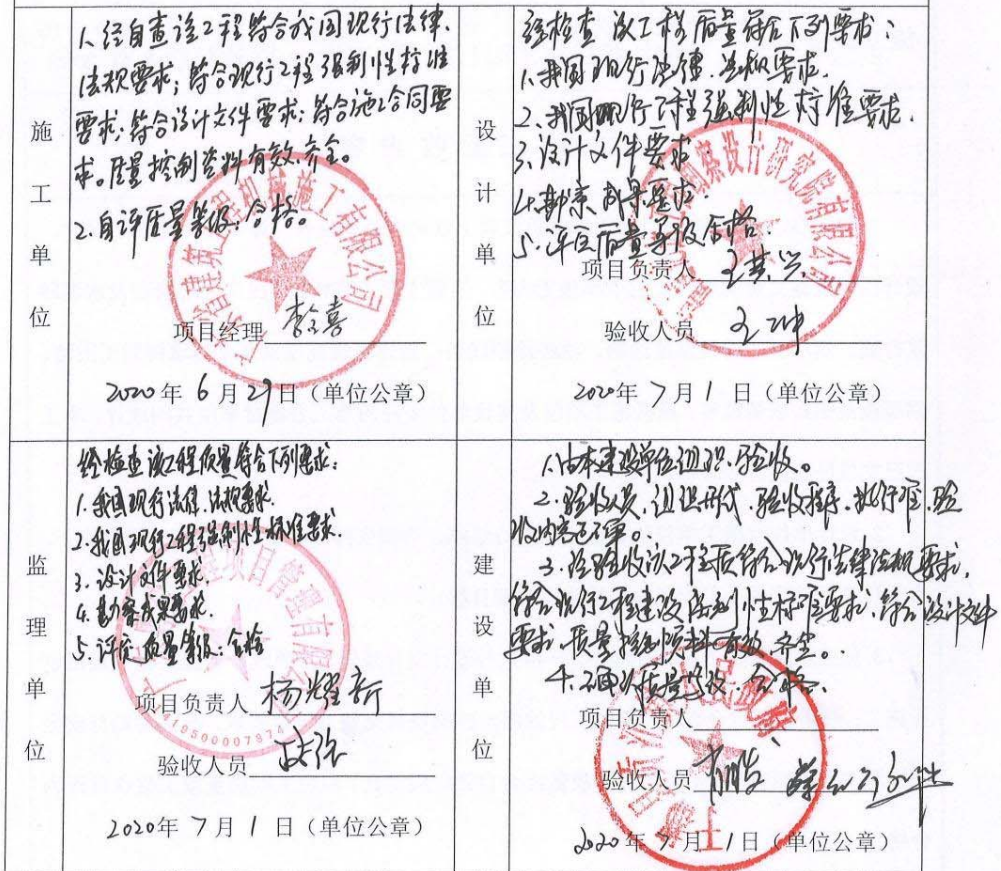 施工单位
1、经自查该工程符合我国现行法律、
法规要求；符合现行工程强制性标准
要求；符合设计文件要求；符合施工合同要
求。质量控制资料有效、齐全。
2、自评质量等级：合格。
建筑工程机械施工有限公司
项目经理
2020年6月29日（单位公章）
设计单位
经检查 该工程质量符合下列要求：
1、我国现行法律、法规要求.
2、我国现行工程强制性标准要求.
3、设计文件要求
4、勘察成果要求.
5、评定质量等级合格
勘察设计研究院有限公司
项目负责人
验收人员 王坤
2020年7月1日（单位公章）
监理单位
经检查该工程质量符合下列要求：
1、我国现行法律、法规要求.
2、我国现行工程强制性标准要求.
3、设计文件要求.
4、勘察成果要求.
5、评定质量等级：合格
项目管理有限公司
项目负责人 杨耀新
验收人员
2020年7月1日（单位公章）
建设单位
1、由本建设单位组织验收。
2、验收人员、组织形式、验收程序、执行标准、验
收内容
3、经验收该工程质 符合现行法律法规要求，
符合现行工程建设强制性标准要求，符合设计文件
要求，质量控制资料有效、齐全。
4、确认质量等级：合格.
人民政府
项目负责人
验收人员
2020年7月1日（单位公章）